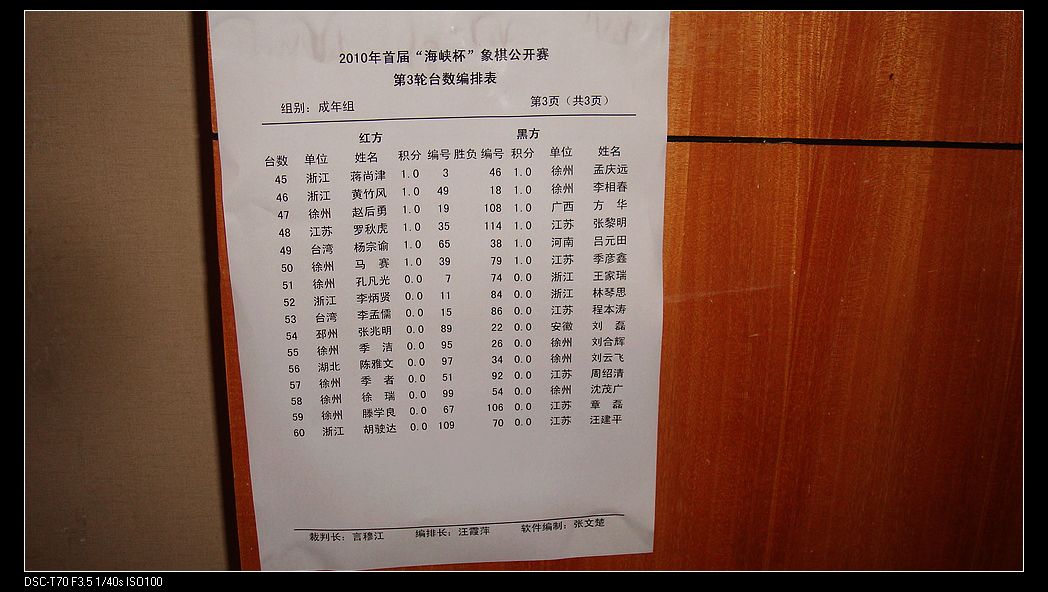 2010年首届“海峡杯”象棋公开赛
第3轮台数编排表
组别：成年组 第3页（共3页）
红方 黑方
台数 单位 姓名 积分 编号 胜负 编号 积分 单位 姓名
45 浙江 蒋尚津 1.0 3 46 1.0 徐州 孟庆远
46 浙江 黄竹风 1.0 49 18 1.0 徐州 李相春
47 徐州 赵后勇 1.0 19 108 1.0 广西 方 华
48 江苏 罗秋虎 1.0 35 114 1.0 江苏 张黎明
49 台湾 杨宗谕 1.0 65 38 1.0 河南 吕元田
50 徐州 马 赛 1.0 39 79 1.0 江苏 季彦鑫
51 徐州 孔凡光 0.0 7 74 0.0 浙江 王家瑞
52 浙江 李炳贤 0.0 11 84 0.0 浙江 林琴思
53 台湾 李孟儒 0.0 15 86 0.0 江苏 程本涛
54 邳州 张兆明 0.0 89 22 0.0 安徽 刘 磊
55 徐州 季 洁 0.0 95 26 0.0 徐州 刘合辉
56 湖北 陈雅文 0.0 97 34 0.0 徐州 刘云飞
57 徐州 季 者 0.0 51 92 0.0 江苏 周绍清
58 徐州 徐 瑞 0.0 99 54 0.0 徐州 沈茂广
59 徐州 滕学良 0.0 67 106 0.0 江苏 章 磊
60 浙江 胡骏达 0.0 109 70 0.0 江苏 汪建平
裁判长：言穆江 编排长：汪霞萍 软件编制：张文楚
DSC-T70 F3.5 1/40s ISO100